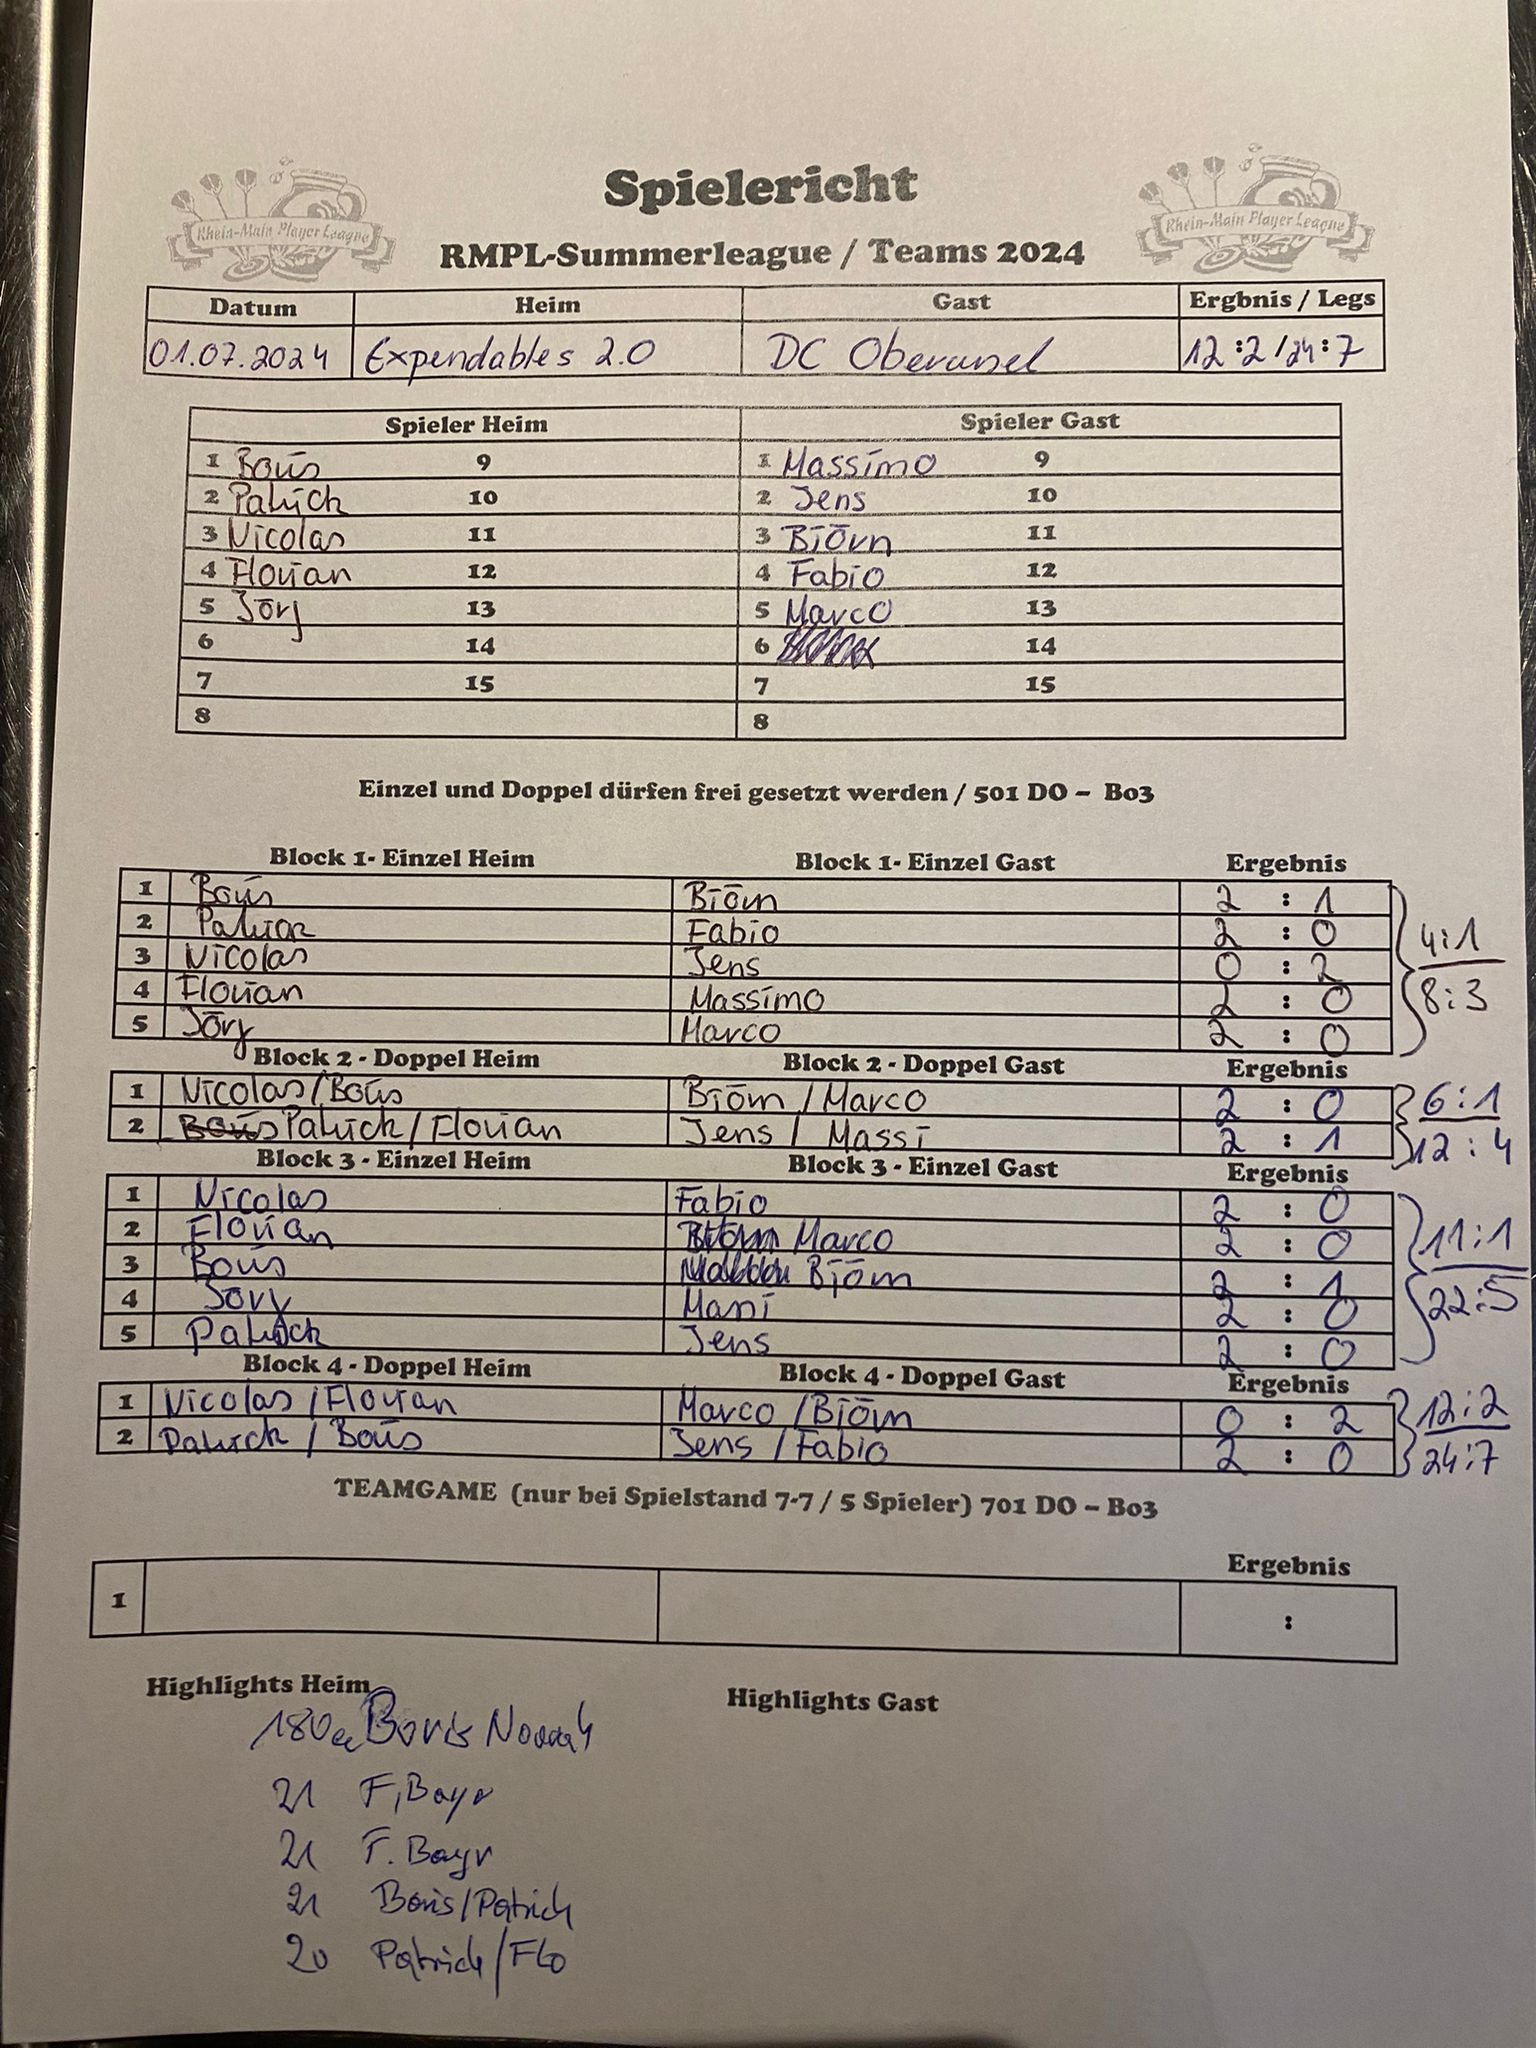 Spielericht
Rhein-Main Player League
Rhein-Main Player League
RMPL-Summerleague / Teams 2024
Datum Heim Gast Ergbnis / Legs
01.07.2024 Expendables 2.0 DC Oberursel 12:2 / 24:7
Spieler Heim Spieler Gast
1 Boris 9 1 Massimo 9
2 Patrick 10 2 Jens 10
3 Nicolas 11 3 Björn 11
4 Florian 12 4 Fabio 12
5 Jörg 13 5 Marco 13
6 14 6 14
7 15 7 15
8 8
Einzel und Doppel dürfen frei gesetzt werden / 501 DO – Bo3
Block 1- Einzel Heim Block 1- Einzel Gast Ergebnis
1 Boris Björn 2 : 1
2 Patrick Fabio 2 : 0
3 Nicolas Jens 0 : 2
4 Florian Massimo 2 : 0
5 Jörg Marco 2 : 0
4:1
8:3
Block 2 - Doppel Heim Block 2 - Doppel Gast Ergebnis
1 Nicolas/Boris Björn / Marco 2 : 0
2 Boris Patrick / Florian Jens / Massi 2 : 1
6:1
12:4
Block 3 - Einzel Heim Block 3 - Einzel Gast Ergebnis
1 Nicolas Fabio 2 : 0
2 Florian Marco 2 : 0
3 Boris Björn 2 : 1
4 Jörg Massi 2 : 0
5 Patrick Jens 2 : 0
11:1
22:5
Block 4 - Doppel Heim Block 4 - Doppel Gast Ergebnis
1 Nicolas / Florian Marco / Björn 0 : 2
2 Patrick / Boris Jens / Fabio 2 : 0
12:2
24:7
TEAMGAME (nur bei Spielstand 7-7 / 5 Spieler) 701 DO – Bo3
Ergebnis
1 :
Highlights Heim Highlights Gast
180er Boris
21 F. Bayr
21 F. Bayr
21 Boris/Patrick
20 Patrick/Flo